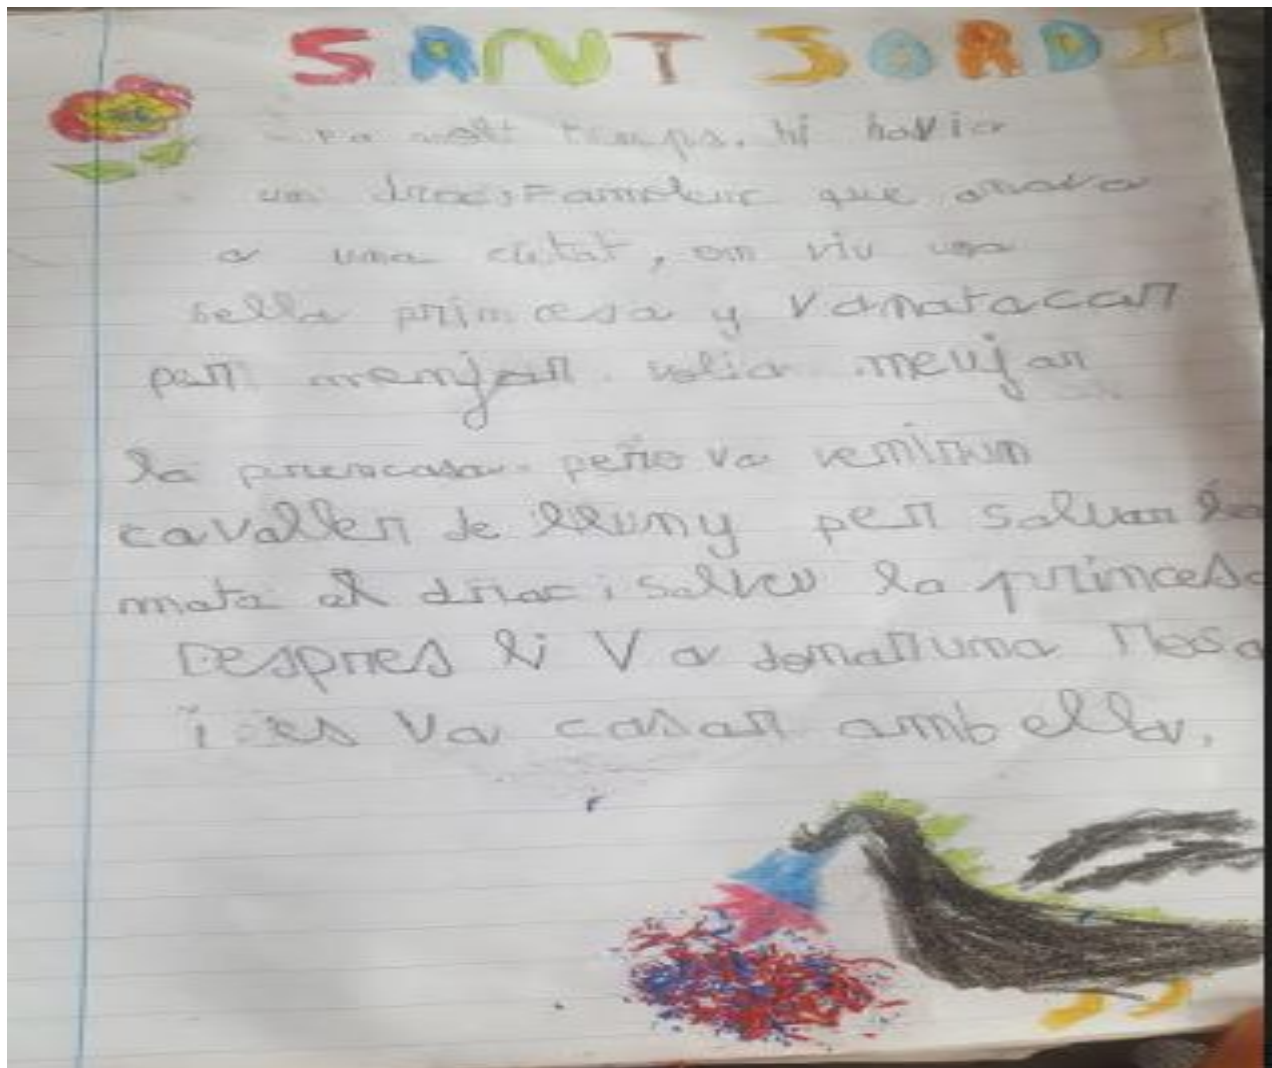 SANT JORDI
Fa molt temps, hi havia
un drac, famolenc que anava
a una ciutat, on viu una
bella princesa y vanatacar
per menjar. volia menjar
la princesa. pero va venirun
cavaller de lluny per salvar la
mata el drac i salva la princesa
Despres li va donaruna rosa
i es va casar amb ella.